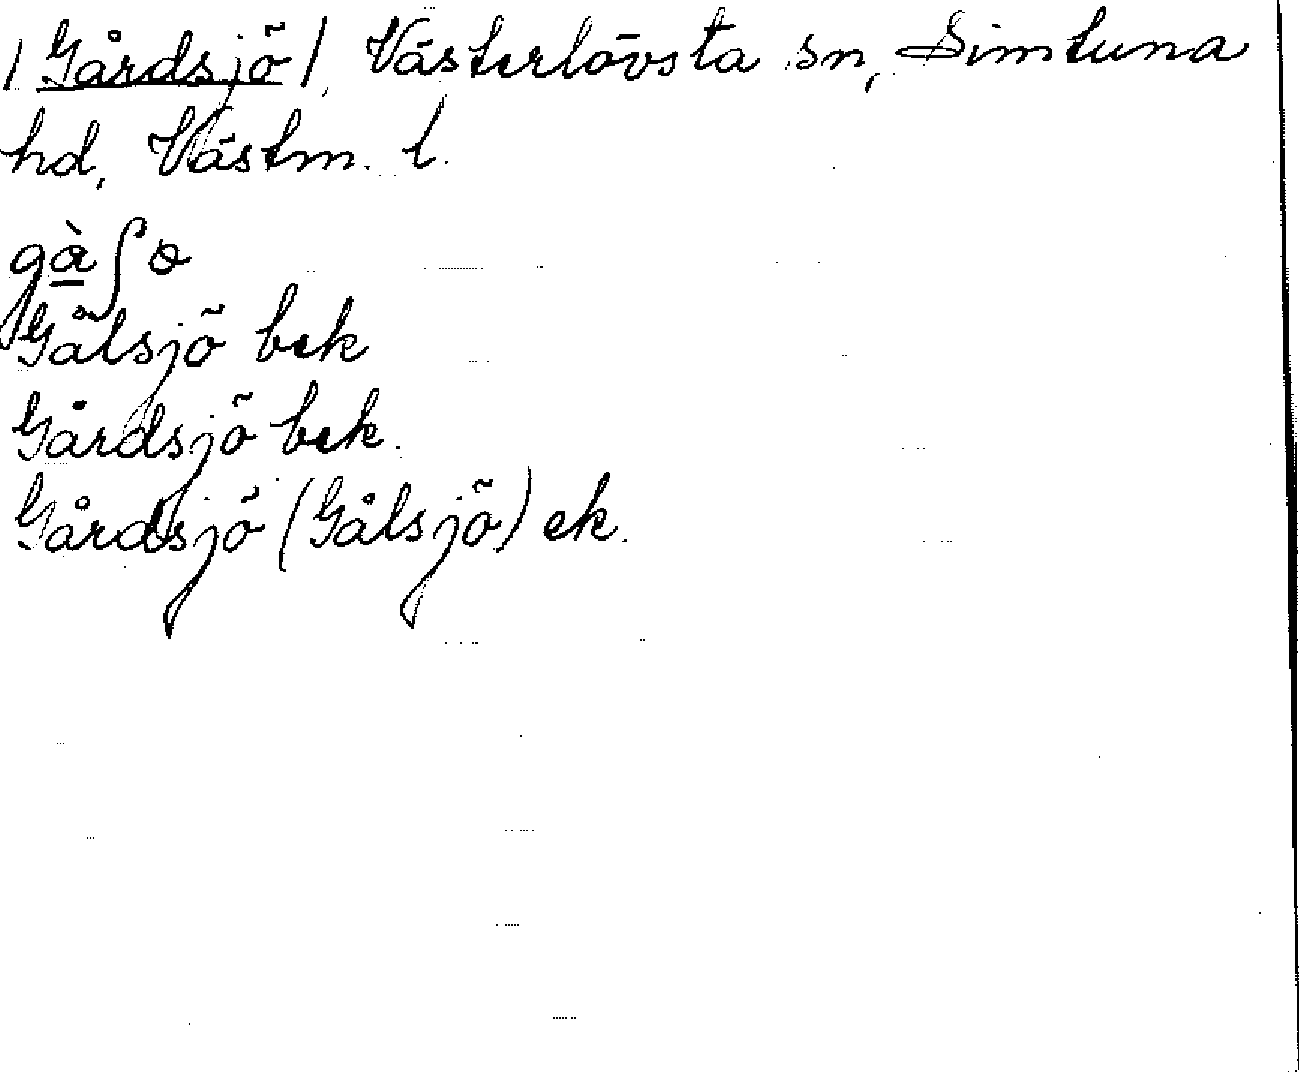 /Gårdsjö/, Västerlövsta sn, Simtuna
hd, Västm. l.
gà̱ʃɵ
Gålsjö bek
Gårdsjö bek.
Gårdsjö (Gålsjö) ek.